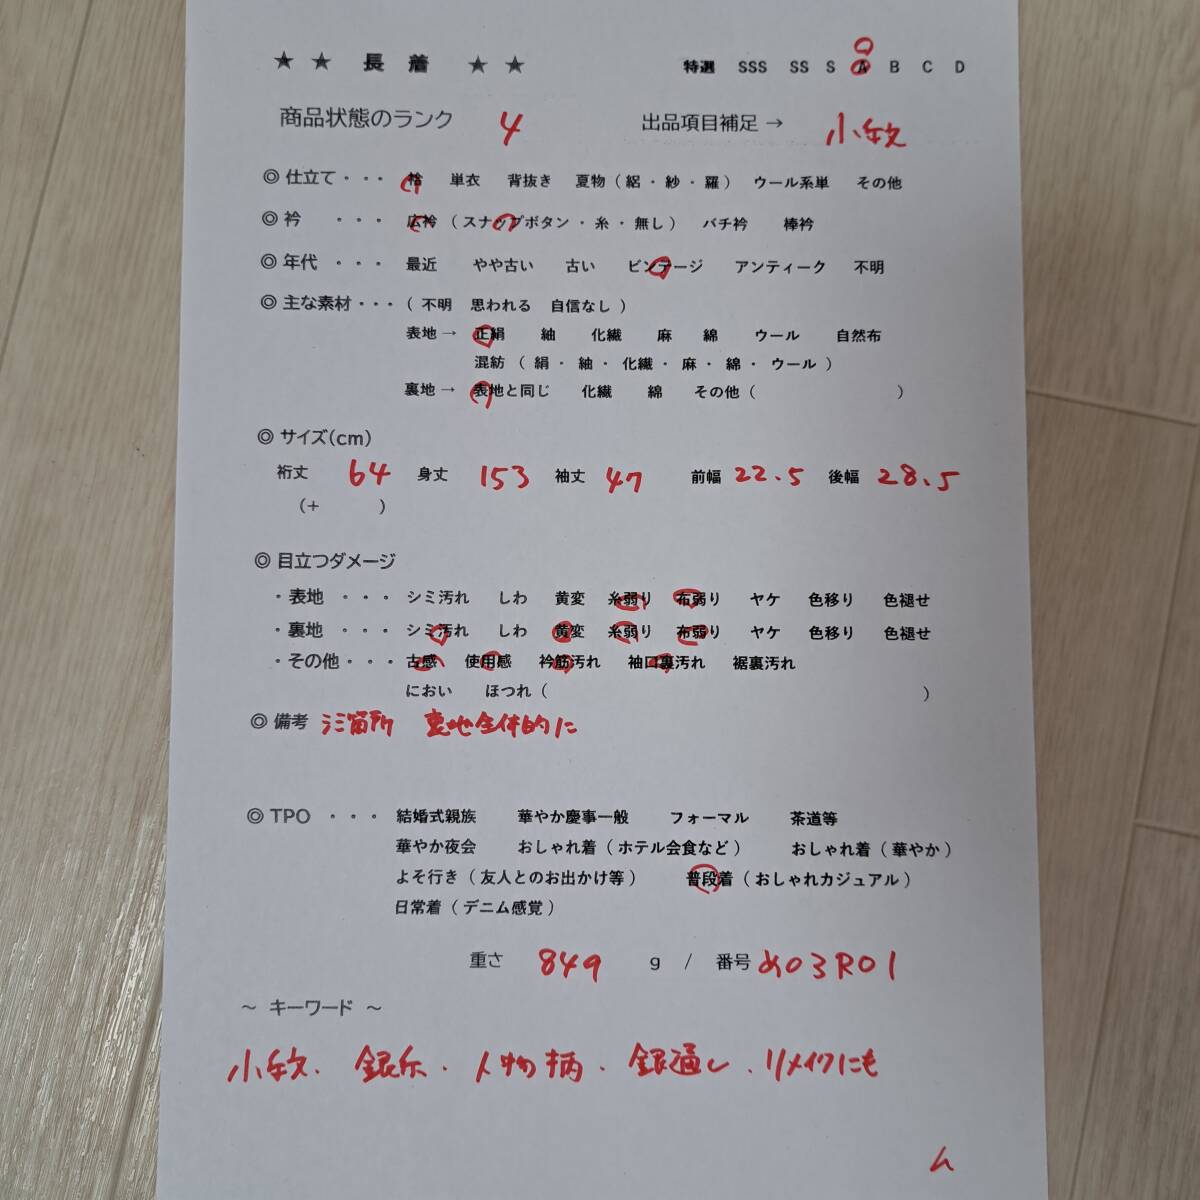 ★ ★ 長 着 ★ ★ 特選 SSS SS S A B C D
商品状態のランク 4 出品項目補足 → 小紋
◎ 仕立て ・・・ 袷 単衣 背抜き 夏物 ( 絽 ・ 紗 ・ 羅 ) ウール系単 その他
◎ 衿 ・・・ 広衿 ( スナップボタン ・ 糸 ・ 無し ) バチ衿 棒衿
◎ 年代 ・・・ 最近 やや古い 古い ビンテージ アンティーク 不明
◎ 主な素材 ・・・ ( 不明 思われる 自信なし )
表地 → 正絹 紬 化繊 麻 綿 ウール 自然布
混紡 ( 絹 ・ 紬 ・ 化繊 ・ 麻 ・ 綿 ・ ウール )
裏地 → 表地と同じ 化繊 綿 その他 ( )
◎ サイズ(cm)
裄丈 64 身丈 153 袖丈 47 前幅 22.5 後幅 28.5
(+ )
◎ 目立つダメージ
・ 表地 ・・・ シミ汚れ しわ 黄変 糸弱り 布弱り ヤケ 色移り 色褪せ
・ 裏地 ・・・ シミ汚れ しわ 黄変 糸弱り 布弱り ヤケ 色移り 色褪せ
・ その他 ・・・ 古感 使用感 衿筋汚れ 袖口裏汚れ 裾裏汚れ
におい ほつれ ( )
◎ 備考 シミ箇所 裏地全体的に
◎ TPO ・・・ 結婚式親族 華やか慶事一般 フォーマル 茶道等
華やか夜会 おしゃれ着 ( ホテル会食など ) おしゃれ着 ( 華やか )
よそ行き ( 友人とのお出かけ等 ) 普段着 ( おしゃれカジュアル )
日常着 ( デニム感覚 )
重さ 849 g / 番号 め03R01
～ キーワード ～
小紋. 銀糸. 人物柄. 銀通し. リメイクにも